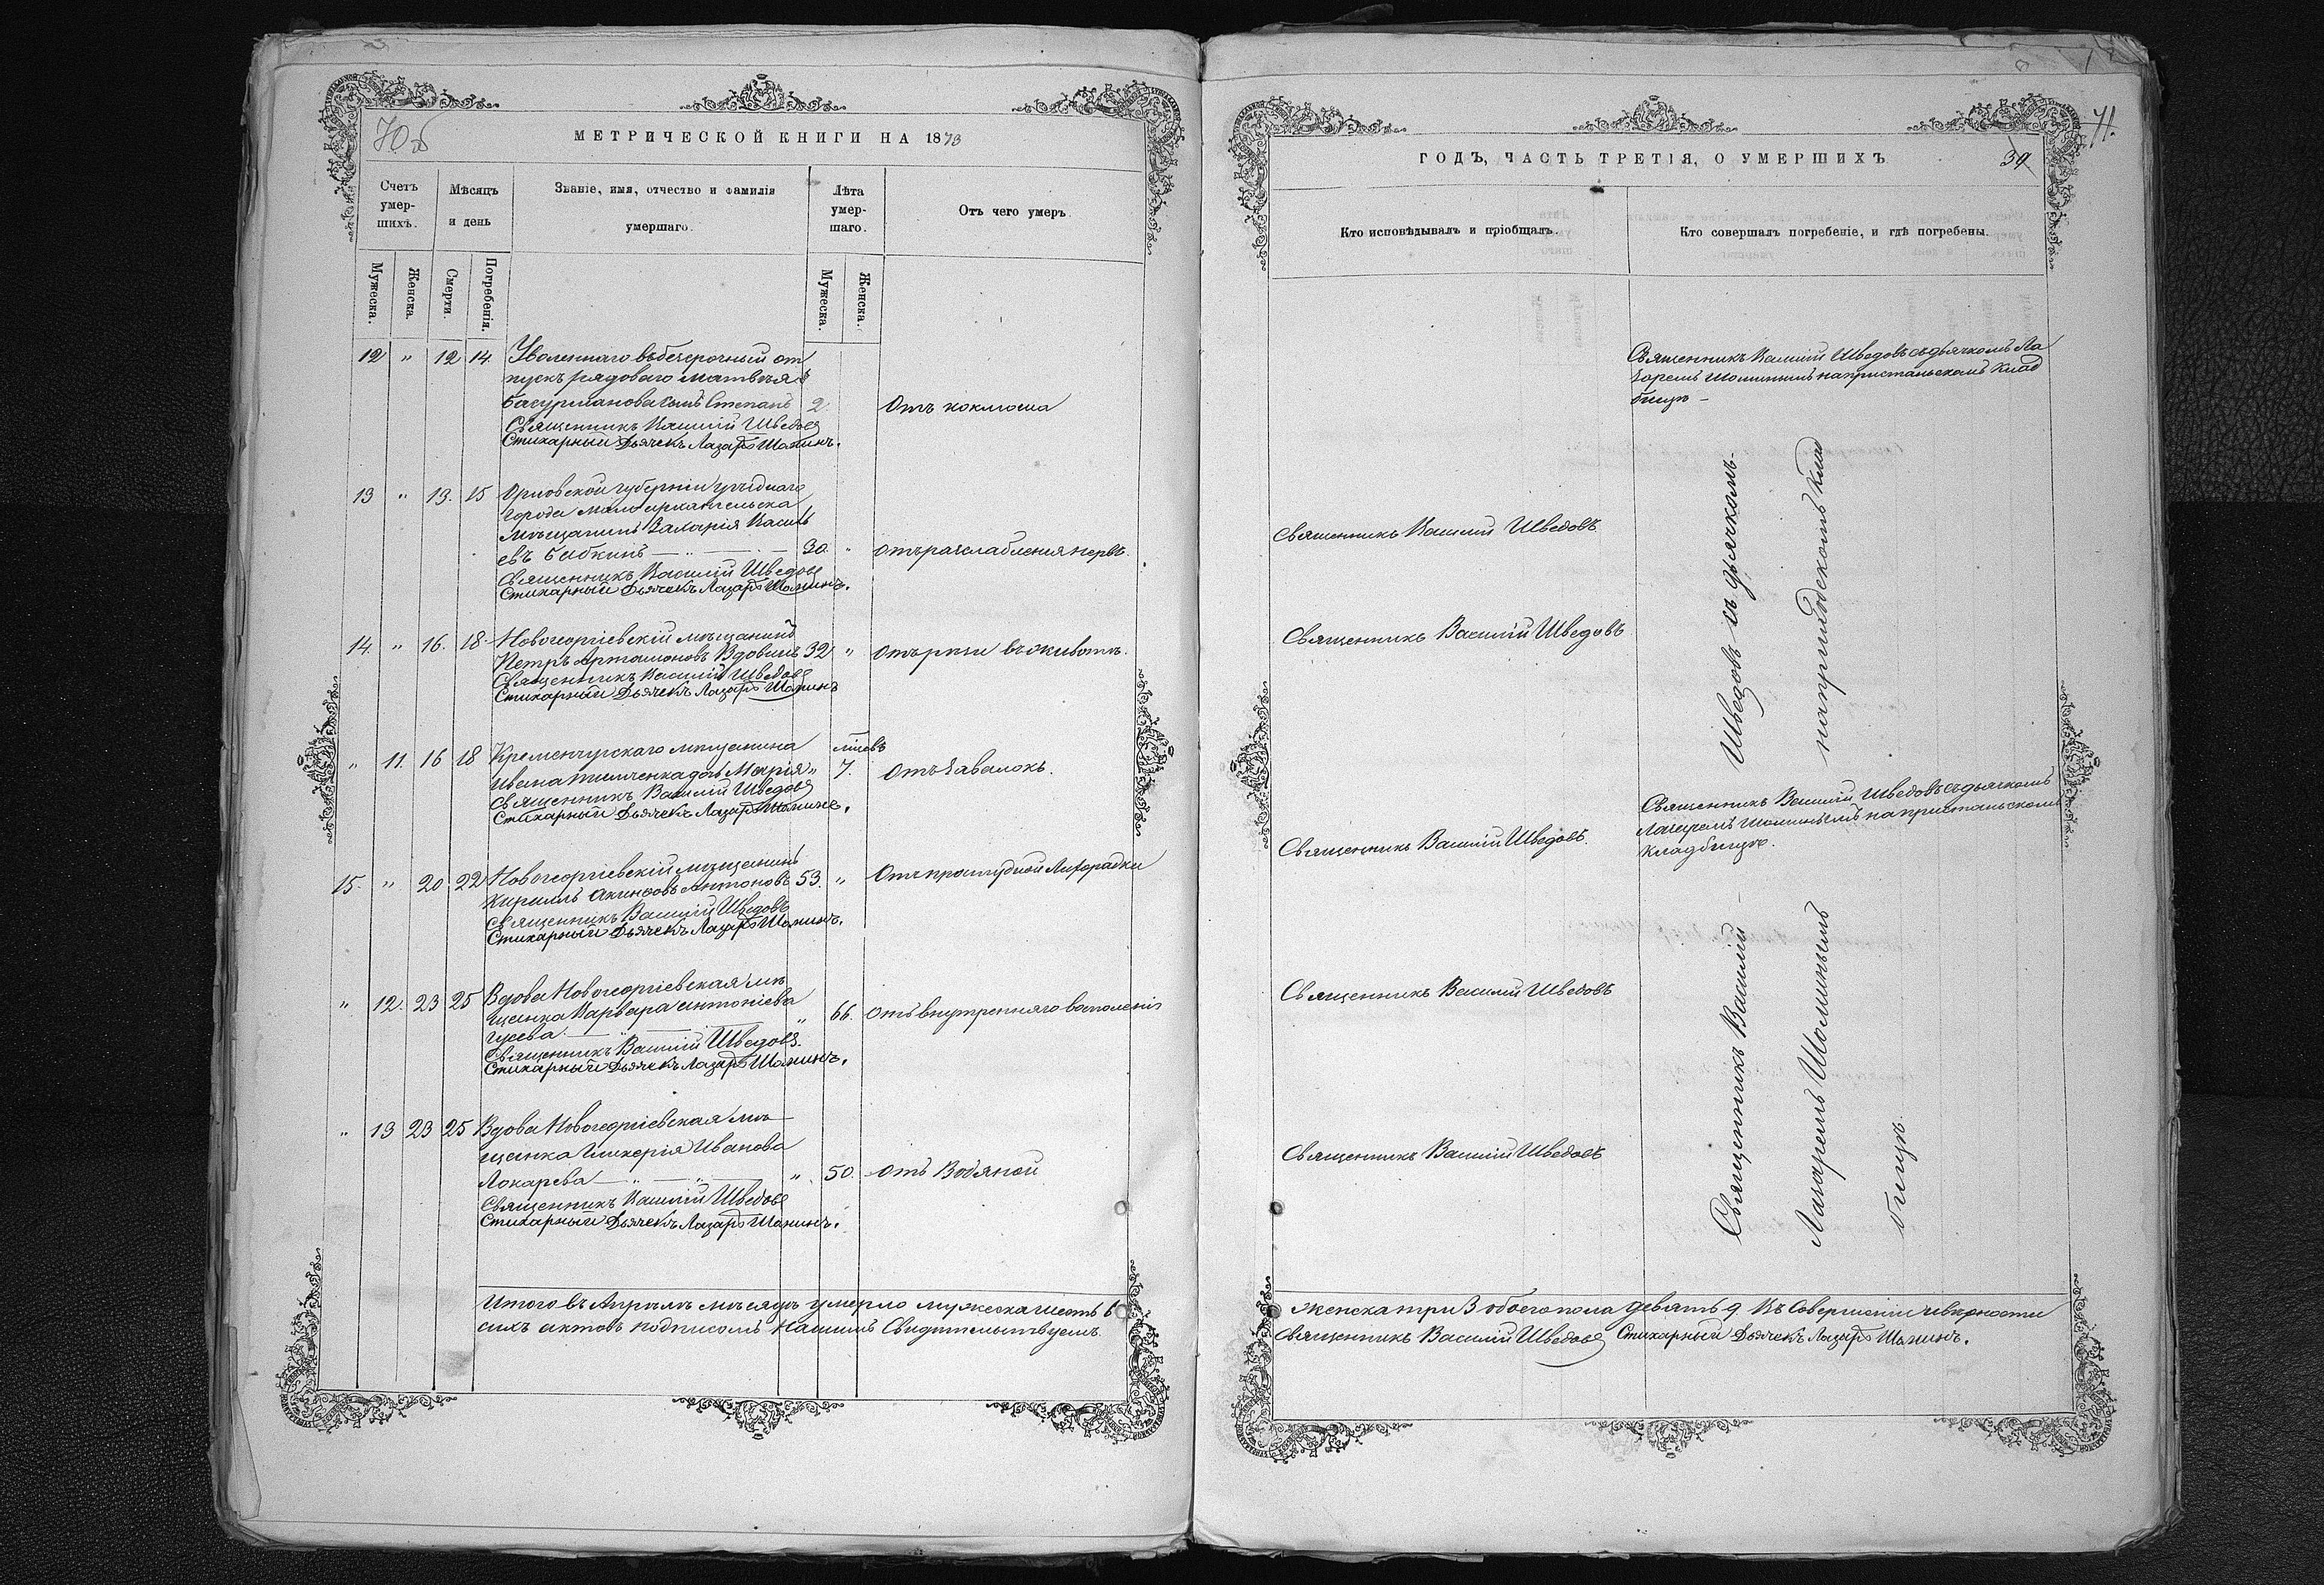 70 об
МЕТРИЧЕСКОЙ КНИГИ НА 1873
Счетъ умер-шихъ.
Мѣсяцъ и день
Званіе, имя, отчество и фамилія умершаго.
Лѣта умер-шаго.
Отъ чего умеръ.
Мужеска.
Женска.
Смерти.
Погребенія.
Мужеска.
Женска.
12 " 12 14 Уволеннаго въ безсрочный от
пускъ рядоваго Матвѣя
Басурманова сынъ Степанъ 2 Отъ коклюша
Священникъ Василій Шведовъ
Стихарный Дьячекъ Лазарь Шаминъ.
13 " 13. 15 Орловской губерніи уѣзднаго
города Мало архангельска
мѣщанинъ Захарія Василь
евъ Бибкинъ — " — 30. " Отъ разслабленія нервъ.
Священникъ Василій Шведовъ
Стихарный Дьячекъ Лазарь Шаминъ.
14. " 16. 18. Новогеоргіевскій мѣщанинъ
Петръ Артамоновъ Вдовинъ 32 " Отъ рези въ животѣ.
Священникъ Василій Шведовъ
Стихарный Дьячекъ Лазарь Шаминъ
" 11. 16 18 Кременчугскаго мѣщанина
Ивана дочь Марія " 7. Отъ завалокъ.
Священникъ Василій Шведовъ
Стихарный Дьячекъ Лазарь Шаминъ.
15. " 20 22 Новогеоргіевскій мѣщанинъ
Кириллъ Антоновъ 53. " Отъ простудной Лихорадки
Священникъ Василій Шведовъ
Стихарный Дьячекъ Лазарь Шаминъ.
" 12. 23 25 Вдова Новогеоргіевская мѣ
щанка Варвара Антоніева
Гусева — " — " 66. Отъ внутренняго воспаленія
Священникъ Василій Шведовъ.
Стихарный Дьячекъ Лазарь Шаминъ.
" 13 23 25 Вдова Новогеоргіевская мѣ
щанка Гликерія Иванова
Локарева — " — " — " 50. Отъ Водяной
Священникъ Василій Шведовъ
Стихарный Дьячекъ Лазарь Шаминъ.
Итого въ Апрѣлѣ мѣсяцѣ умерло мужеска шесть 6
сихъ актовъ подписомъ нашимъ Свидѣтельствуемъ.
71.
ГОДЪ, ЧАСТЬ ТРЕТІЯ, О УМЕРШИХЪ
39
Кто исповѣдывалъ и пріобщалъ.
Кто совершалъ погребеніе, и гдѣ погребены.
Священникъ Василій Шведовъ съ дьячкомъ Ла
заремъ Шаминымъ на пристаньскомъ клад
бищѣ —
Священникъ Василій Шведовъ
Священникъ Василій Шведовъ
Священникъ Василій Шведовъ.
Священникъ Василій Шведовъ съ дьячкомъ
Лазаремъ Шаминымъ на пристаньскомъ
кладбищѣ.
Священникъ Василій Шведовъ
Священникъ Василій Шведовъ
Священникъ Василій Шведовъ съ дьячкомъ-
Лазаремъ Шаминымъ на клад
бищѣ
женска три 3 обоего пола девять 9 Въ Совершеніи и вѣрности
Священникъ Василій Шведовъ Стихарный Дьячекъ Лазарь Шаминъ.